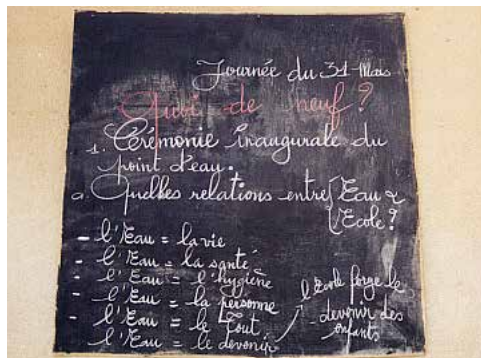 Journée du 31 Mars
Quoi de neuf ?
1. Cérémonie inaugurale du
point d'eau.
a. Quelles relations entre l'Eau &
l'Ecole ?
- l'Eau = la vie
- l'Eau = la santé
- l'Eau = l'hygiène
- l'Eau = la personne
- l'Eau = le Tout
l'Eau = le devenir
l'Ecole forge le
devenir des
enfants